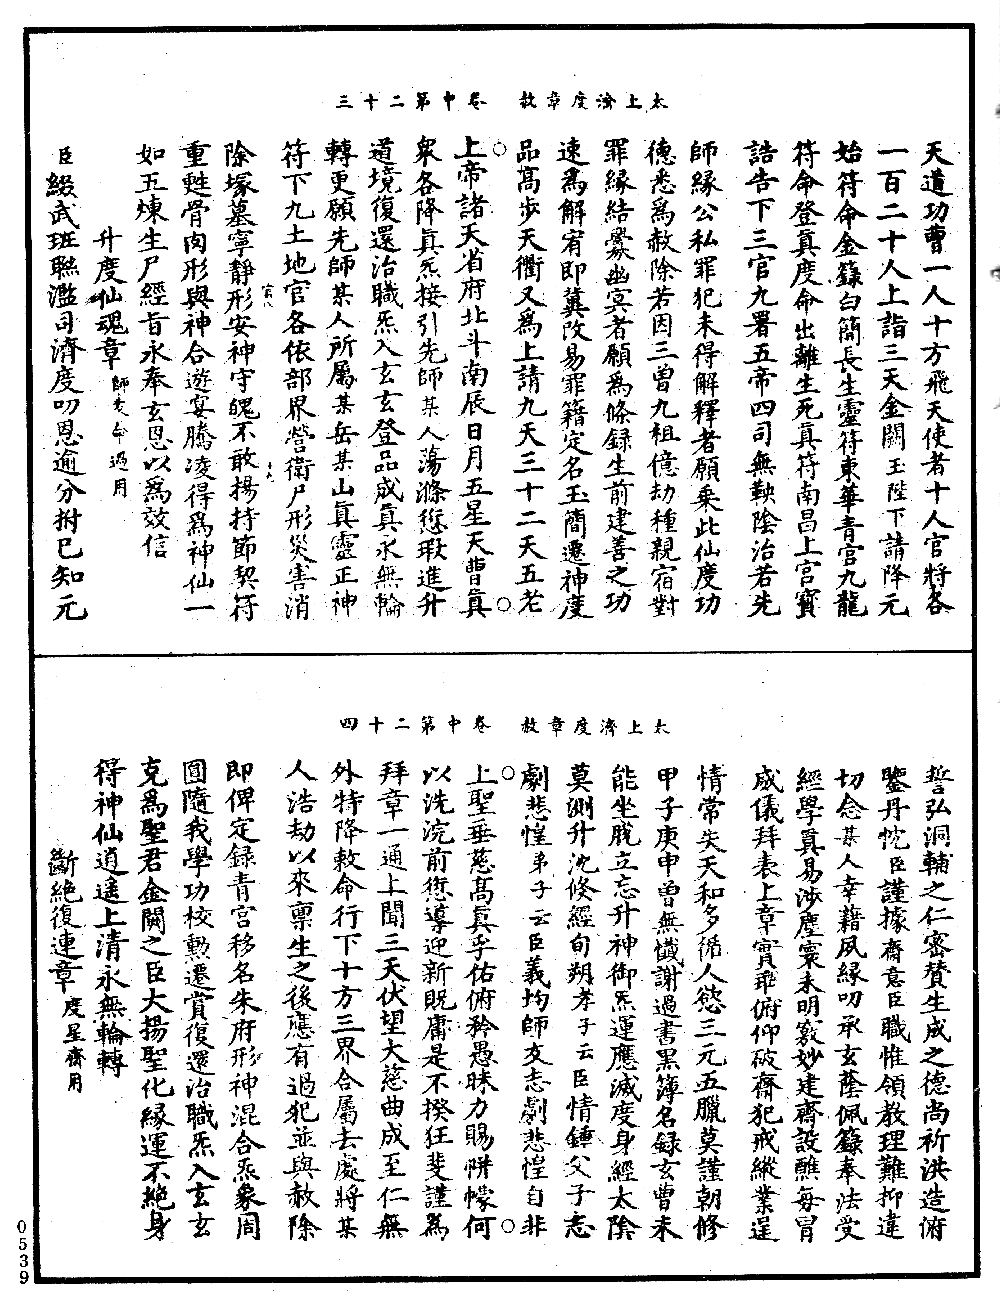 太上濟度章赦　卷中第二十三
天道功曹一人十方飛天使者十人官將各
一百二十人上詣三天金闕玉陛下請降元
始符命金籙白簡長生靈符東華青宮九龍
符命登真度命出離生死真符南昌上宮寶
誥告下三官九署五帝四司無鞅陰治若先
師緣公私罪犯未得解釋者願乘此仙度功
德悉為赦除若因三曾九祖億劫種親宿對
罪緣結釁幽冥者願為條録生前建善之功
速為解宥即冀改易罪籍定名玉簡遷神度
品高步天衢又為上請九天三十二天五老
上帝諸天省府北斗南辰日月五星天曹真
眾各降真炁接引先師某人蕩滌愆瑕進升
道境復還治職炁入玄玄登品成真永無輪
轉更願先師某人所屬某岳某山真靈正神
符下九土地官各依部界營衛尸形災害消
除塚墓寧靜形安神守魄不敢揚持節契符
重甦骨肉形與神合遊宴騰凌得為神仙一
如五煉生尸經旨永奉玄恩以為效信
升度仙魂章 師友命過用
臣綴武班聯濫司濟度叨恩逾分拊己知元
太上濟度章赦　卷中第二十四
誓弘洞輔之仁密贊生成之德尚祈洪造俯
鑒丹忱臣謹據齋意臣職惟領教理難抑違
切念某人幸藉夙緣叨承玄蔭佩籙奉法受
經學真易涉塵寰未明竅妙建齋設醮每冒
威儀拜表上章實乖俯仰破齋犯戒縱業逞
情常失天和多循人慾三元五臘莫謹朝修
甲子庚申曾無懺謝過書黑簿名録玄曹未
能坐脫立忘升神御炁運應滅度身經太陰
莫測升沈修經旬朔孝子云臣情鍾父子志
劇悲惶弟子云臣義均師友志劇悲惶自非
上聖垂慈高真孚佑俯矜愚昧力賜帡幪何
以洗浣前愆導迎新貺庸是不揆狂斐謹為
拜章一通上聞三天伏望大慈曲成至仁無
外特降敕命行下十方三界合屬去處將某
人浩劫以來禀生之後應有過犯並與赦除
即俾定録青宮移名朱府形神混合炁象周
圓隨我學功校勳遷賞復還治職炁入玄玄
克為聖君金闕之臣大揚聖化緣運不絕身
得神仙逍遙上清永無輪轉
斷絕復連章 度星齋用
0539